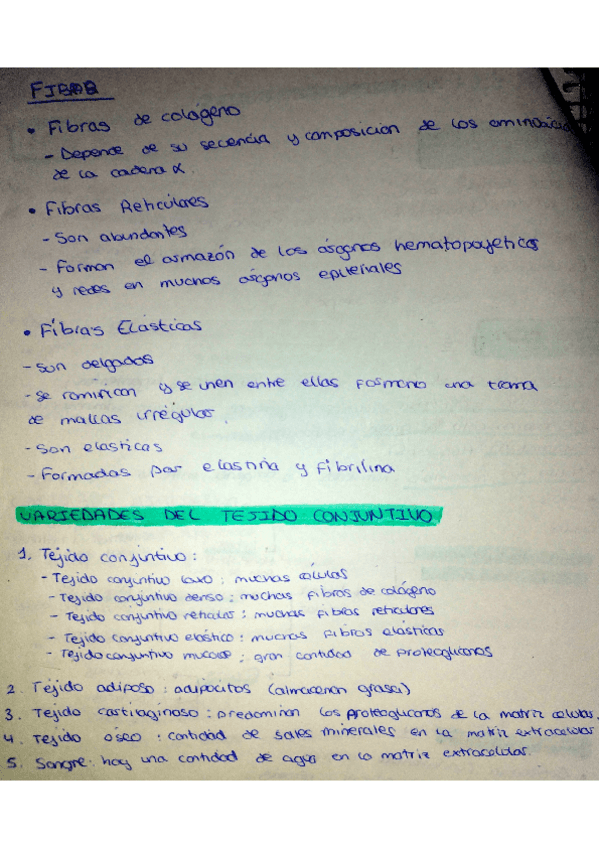 FIBRAS
• Fibras de colágeno
- Depende de su secencia y composición de los aminoácido
de la cadena α.
• Fibras Reticulares
- Son abundantes
- Forman el armazón de los órganos hematopoyeticos
y redes en muchos órganos epiteriales
• Fibras Elásticas
- Son delgados
- se ramifican y se unen entre ellas formano una trama
de mallas irrégular.
- Son elasticas
- Formadas por elastina y fibrilina
VARIEDADES DEL TEJIDO CONJUNTIVO
1. Tejido conjuntivo:
- Tejido conjuntivo laxo: muchas células
- Tejido conjuntivo denso: muchas fibras de colágeno
- Tejido conjuntivo reticular: muchas fibras reticulares
- Tejido conjuntivo elastico: muchas fibras elasticas
- Tejido conjuntivo mucoso: gran cantidad de proteoglicanos
2. Tejido adiposo: adipocitos (almacenan grasa)
3. Tejido cartilaginoso: predominan los proteoglicanos de la matriz celular.
4. Tejido óseo: cantidad de sales minerales en la matriz extracelular
5. Sangre: hay una cantidad de agua en la matriz extracelular.